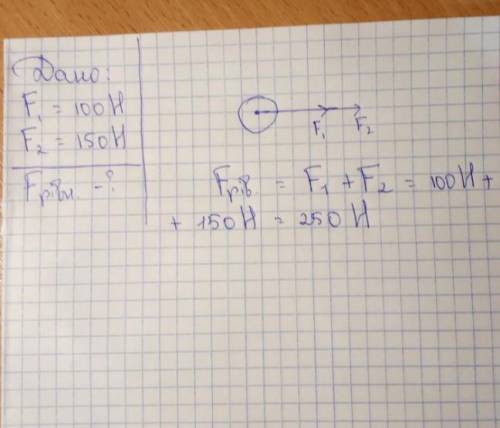 Дано:
F₁ = 100 Н
F₂ = 150 Н
Fрівн. - ?
F₁ F₂
Fрів = F₁ + F₂ = 100 Н +
+ 150 Н = 250 Н